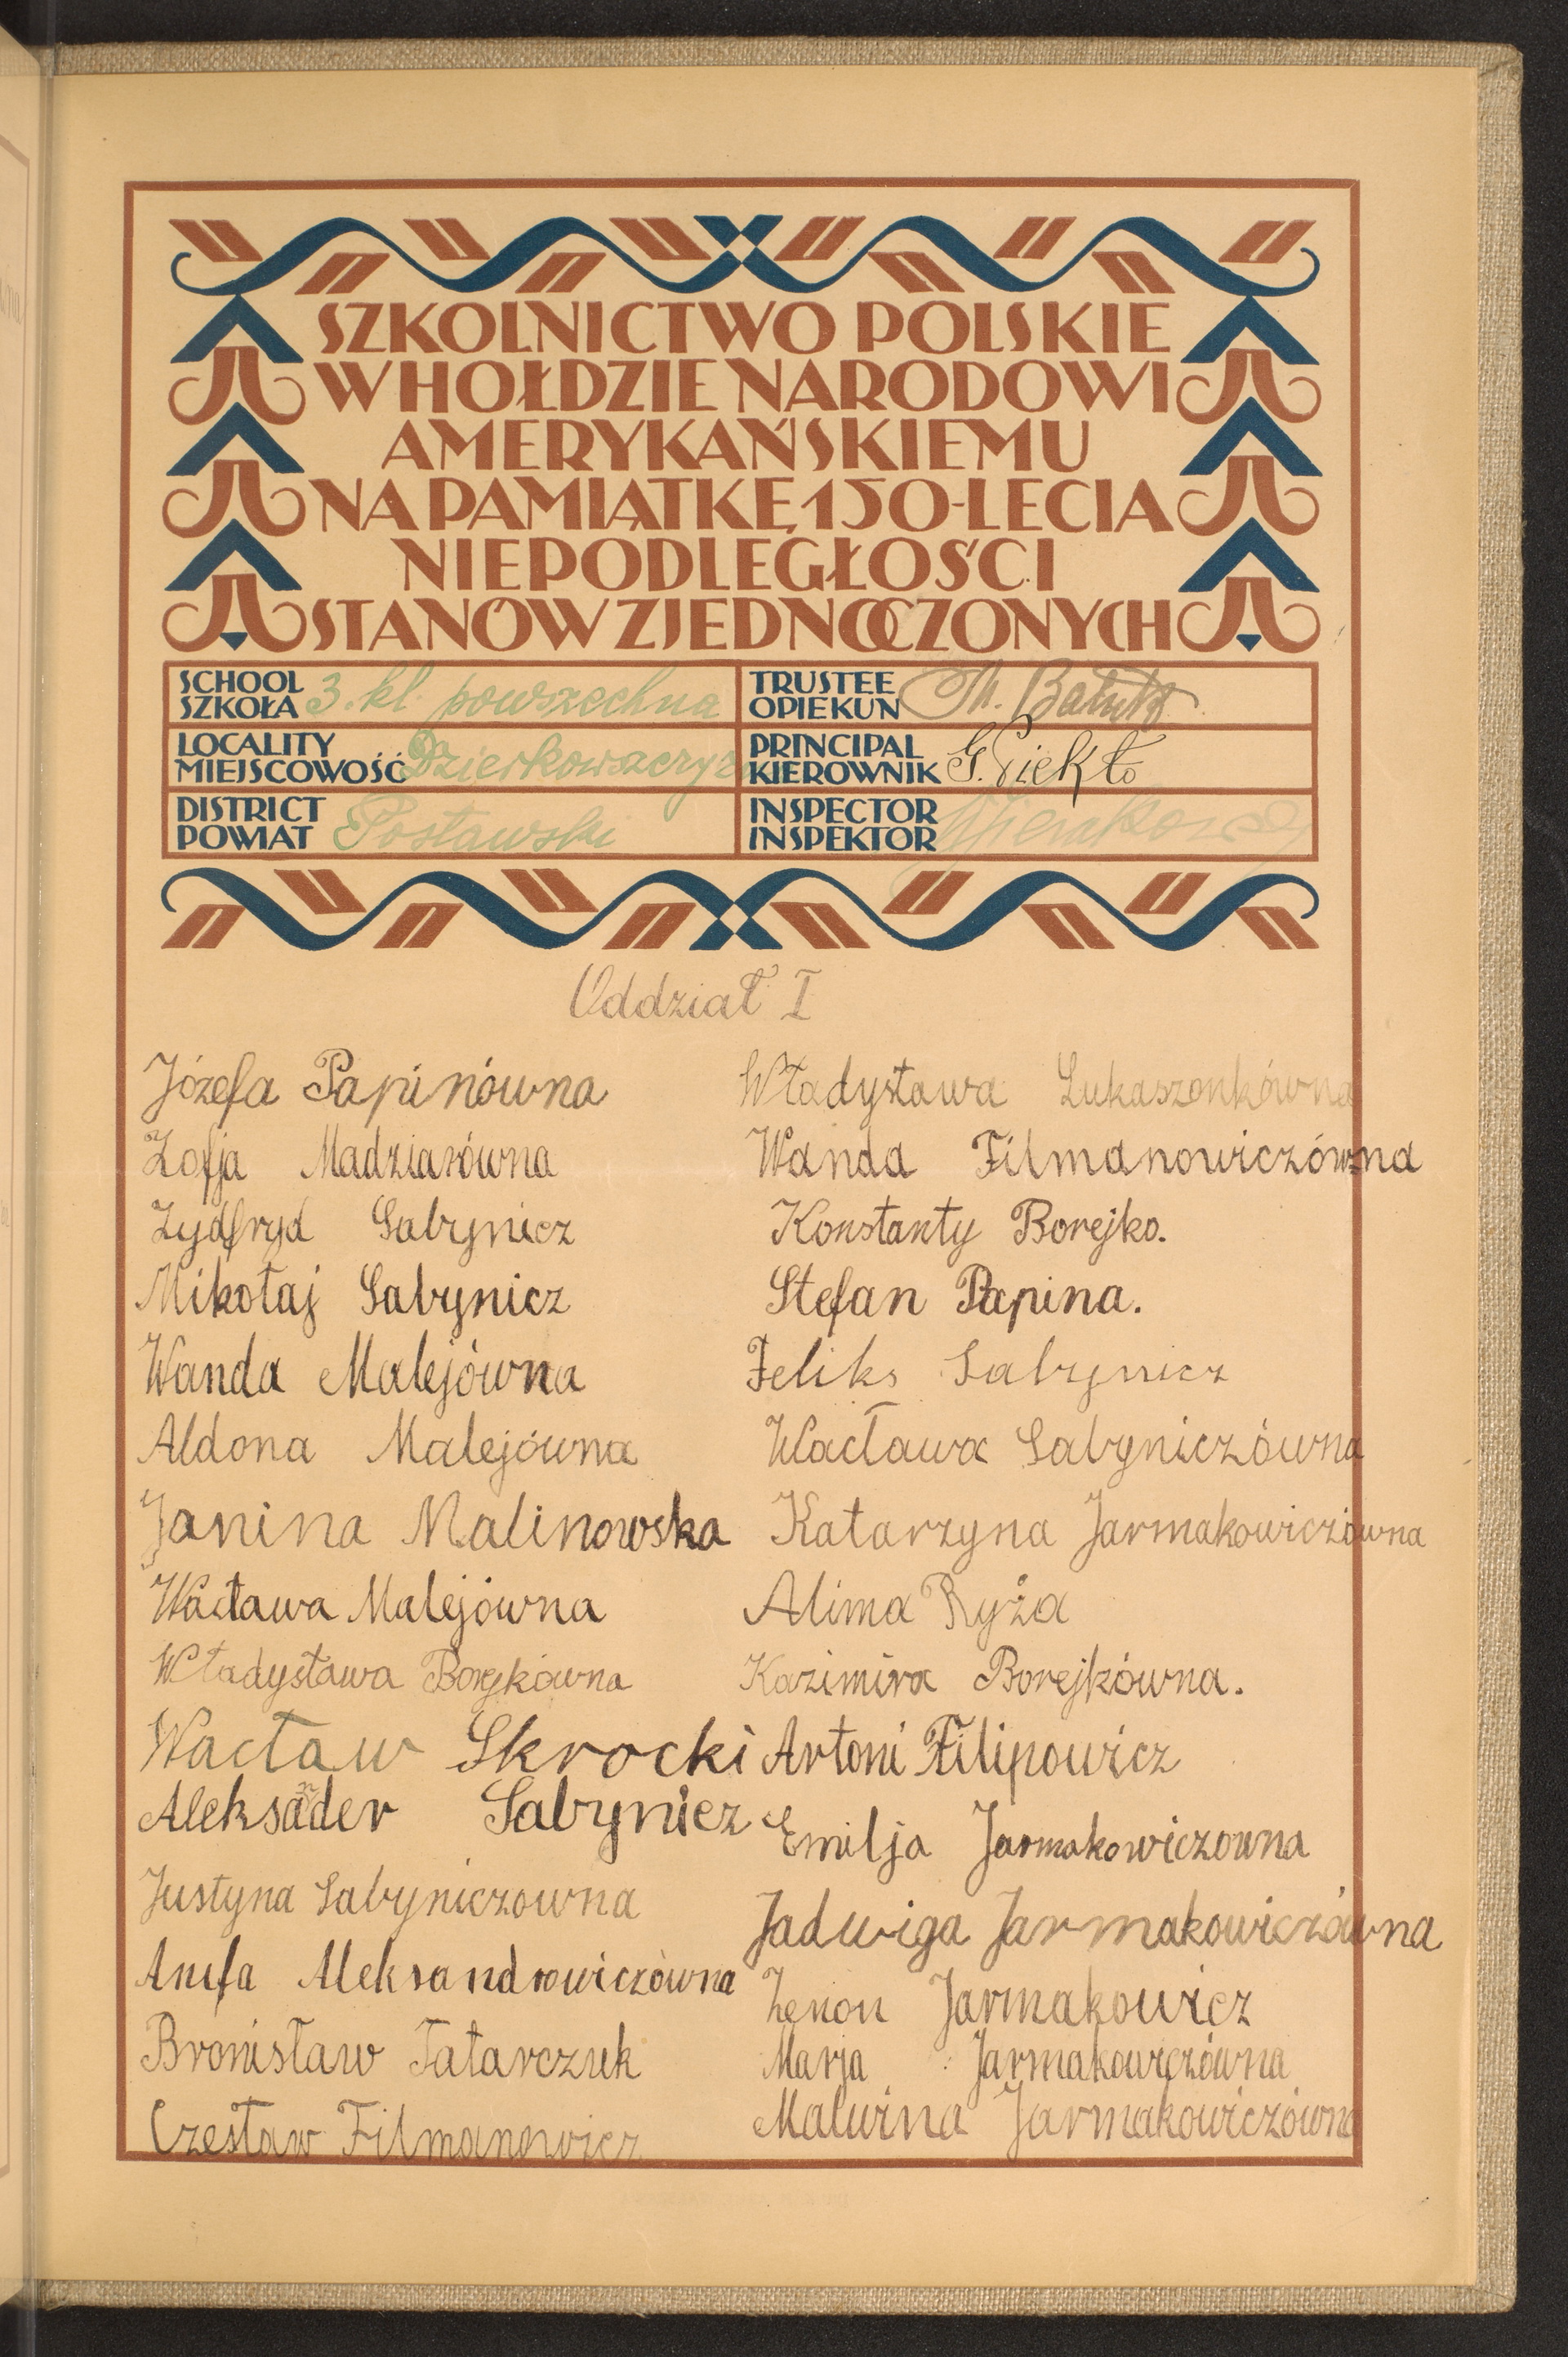 SZKOLNICTWO POLSKIE
W HOŁDZIE NARODOWI
AMERYKAŃSKIEMU
NA PAMIĄTKĘ 150-LECIA
NIEPODLEGŁOŚCI
STANÓW ZJEDNOCZONYCH
SCHOOL
SZKOŁA 3. kl. powszechna
LOCALITY
MIEJSCOWOŚĆ
DISTRICT
POWIAT Postawski
TRUSTEE
OPIEKUN
PRINCIPAL
KIEROWNIK G. Piekło
INSPECTOR
INSPEKTOR
Oddział I
Józefa Papinówna
Zofja Madziarówna
Zydfryd Sabynicz
Mikołaj Sabynicz
Wanda Malejówna
Aldona Malejówna
Janina Malinowska
Wacława Malejówna
Władysława Borejkówna
Wacław Skrocki
Aleksander Sabynicz
Justyna Sabyniczowna
Anifa Aleksandrowiczówna
Bronisław Tatarczuk
Czesław Filmanowicz
Władysława Łukaszonkówna
Wanda Filmanowiczówna
Konstanty Borejko.
Stefan Papina.
Feliks Sabynicz
Wacława Sabyniczówna
Katarzyna Jarmakowiczówna
Alima Ryża
Kazimira Borejkówna.
Artoni Filipowicz
Emilja Jarmakowiczowna
Jadwiga Jarmakowiczówna
Zenon Jarmakowicz
Marja Jarmakowiczówna
Malwina Jarmakowiczówna